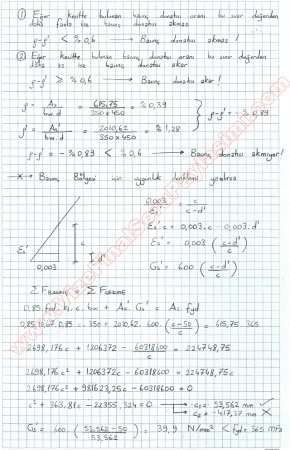 ① Eğer kesitte bulunan basınç donatısı oranı bu sınır değerden
daha fazla ise basınç donatısı akmaz
ρ-ρ' < % 0,6 → Basınç donatısı akmaz !
② Eğer kesitte bulunan basınç donatısı oranı bu sınır değerden
daha az ise basınç donatısı akar
ρ-ρ' ≥ % 0,6 → Basınç donatısı akar !
ρ = As / bw.d = 615,75 / 350x450 = % 0,39
ρ' = As' / bw.d = 2010,62 / 350x450 = % 1,28
ρ-ρ' = -% 0,89
ρ-ρ' = -% 0,89 < % 0,6 → Basınç donatısı akmıyor !
* → Basınç Bölgesi için uygunluk denklemi yazılırsa
0,003 / Es' = c / c-d'
Es'.c = 0,003.c - 0,003.d'
Es' = 0,003 (c-d' / c)
Gs' = 600 (c-d' / c)
Es'
0,003
c
d'
Σ FBASINÇ = Σ FÇEKME
0,85.fcd.k1.c.bw + As'.Gs' = As.fyd
0,85.10,67.0,85.c.350 + 2010,62.600 (c-50 / c) = 615,75.365
2698,176c + 1206372 - 60318600 / c = 224748,75
2698,176c² + 1206372c - 60318600 = 224748,75c
2698,176c² + 981623,25c - 60318600 = 0
c² + 363,81c - 22355,324 = 0 → c1 = 53,562 mm ✓
→ c2 = -417,37 mm ×
Gs' = 600. (53,562-50 / 53,562) = 39,9 N/mm² < fyd = 365 mPa